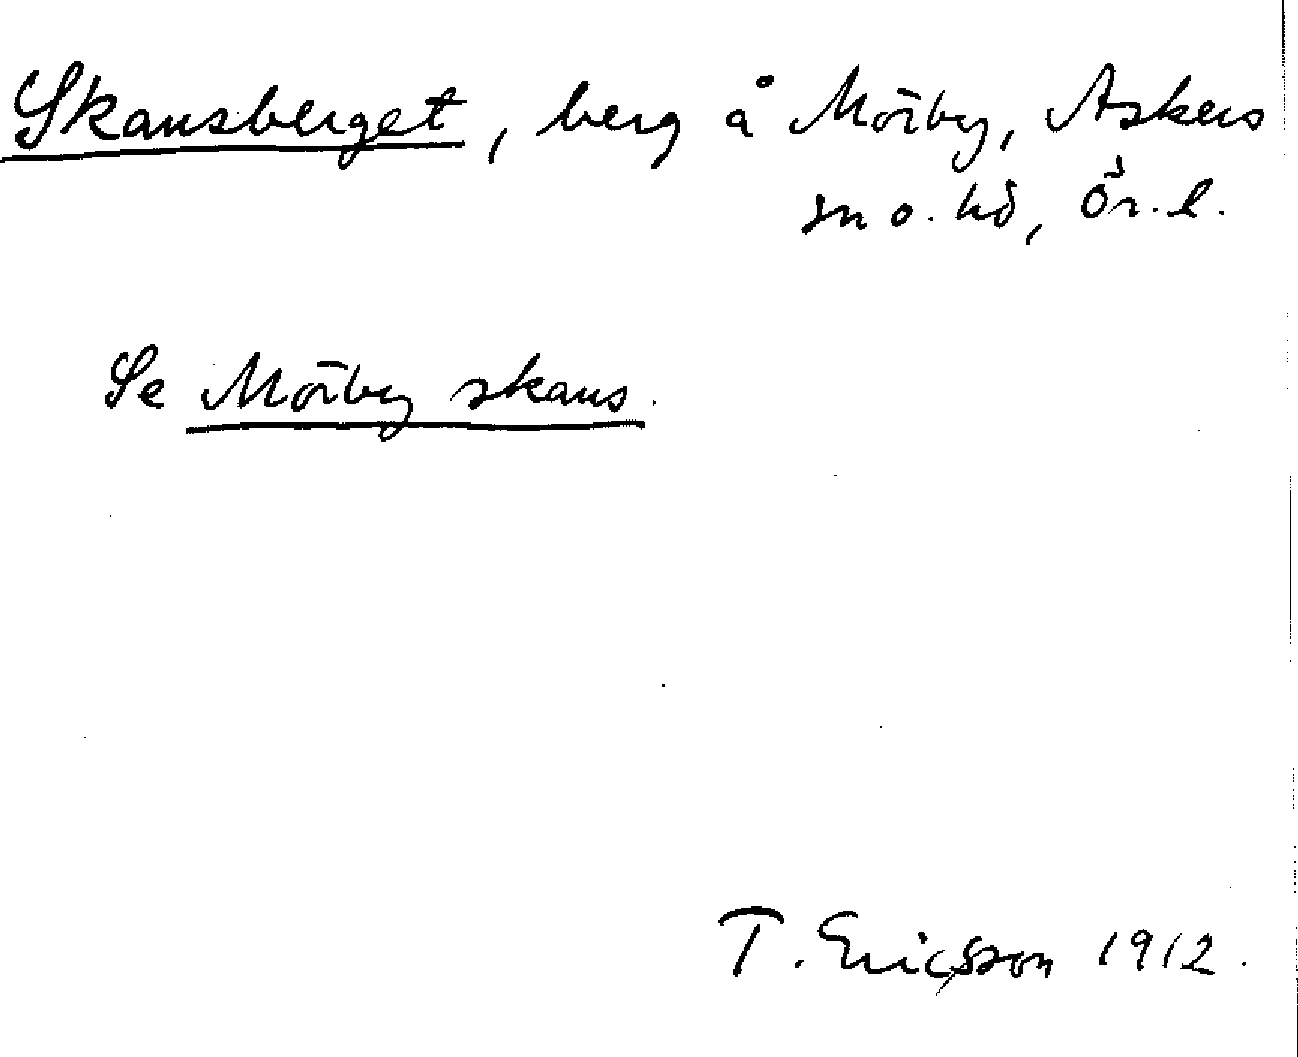 Skansberget, berg å Mörby, Askers
sn o. hd, Ör. l.
Se Mörby skans.
T. Ericsson 1912.